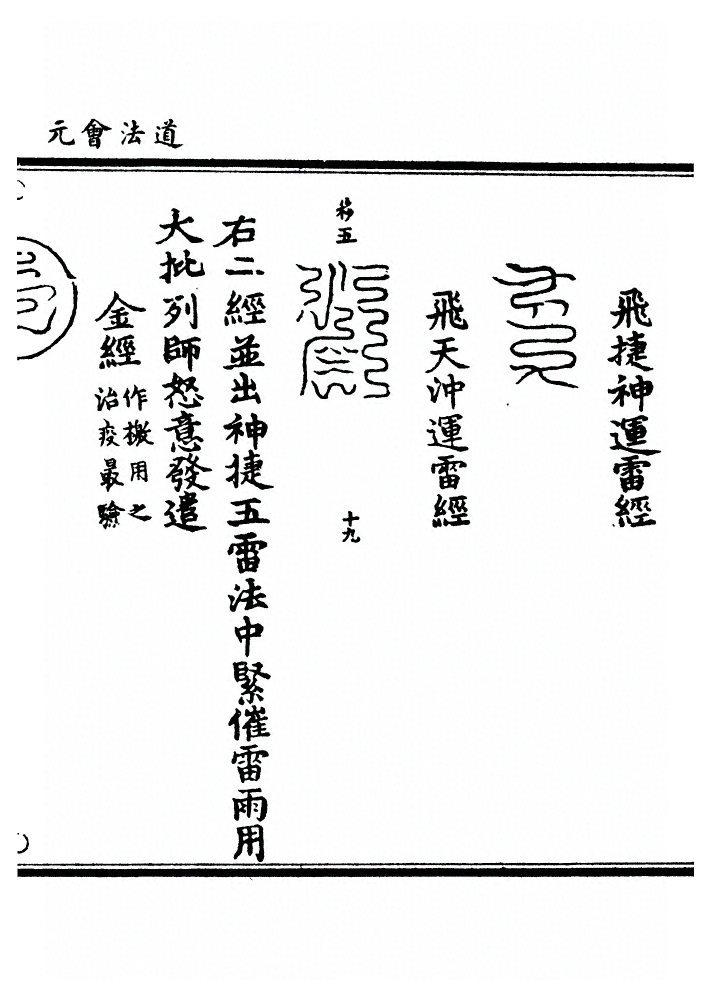 道法會元
飛捷神運雷經
飛天沖運雷經
移五
十九
右二經並出神捷五雷法中緊催雷雨用
大批列師怒意發遣
金經
作檄用之
治疫最驗